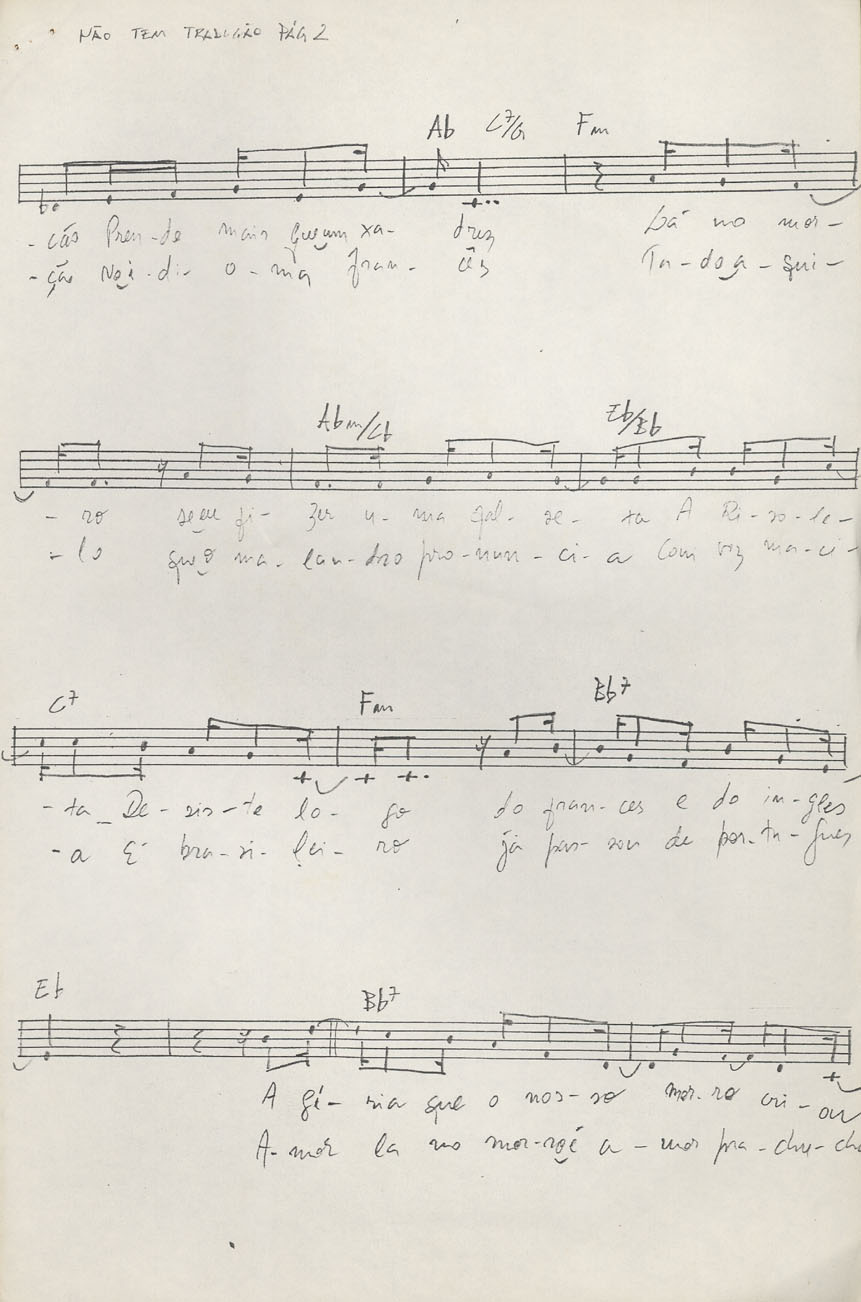 NÃO TEM TRADUÇÃO PÁG 2
Ab C7/G Fm
- ção Pren-de mais queum xa- drez Lá no mor-
- ção No i-di- o-ma fran- cês Tu-do a-qui-
Abm/Cb Eb/Bb
- ro seeu fi- zer u- ma fal- se- ta A Ri-so-le-
- lo que o ma- lan-dro pro-nun-ci-a Com voz ma-ci-
C7 Fm Bb7
- ta_ De-sis-te lo- go do fran-ces e do in-glês
- a É bra-si-lei-ro já pas-sou de por-tu-gues
Eb Bb7
A gí-ria que o nos-so mor-ro cri-ou
A-mor lá no mor-roé a-mor pra-chu-chu